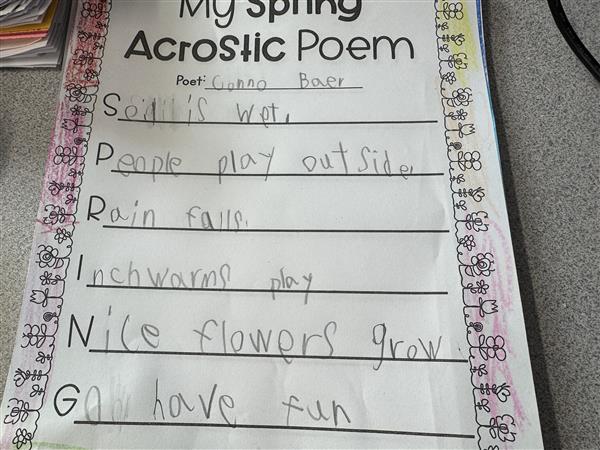 My Spring
Acrostic Poem
Poet: Conno Baer
Soil is wet.
People play outside.
Rain falls.
Inchwarms play
Nice flowers grow
Go have fun